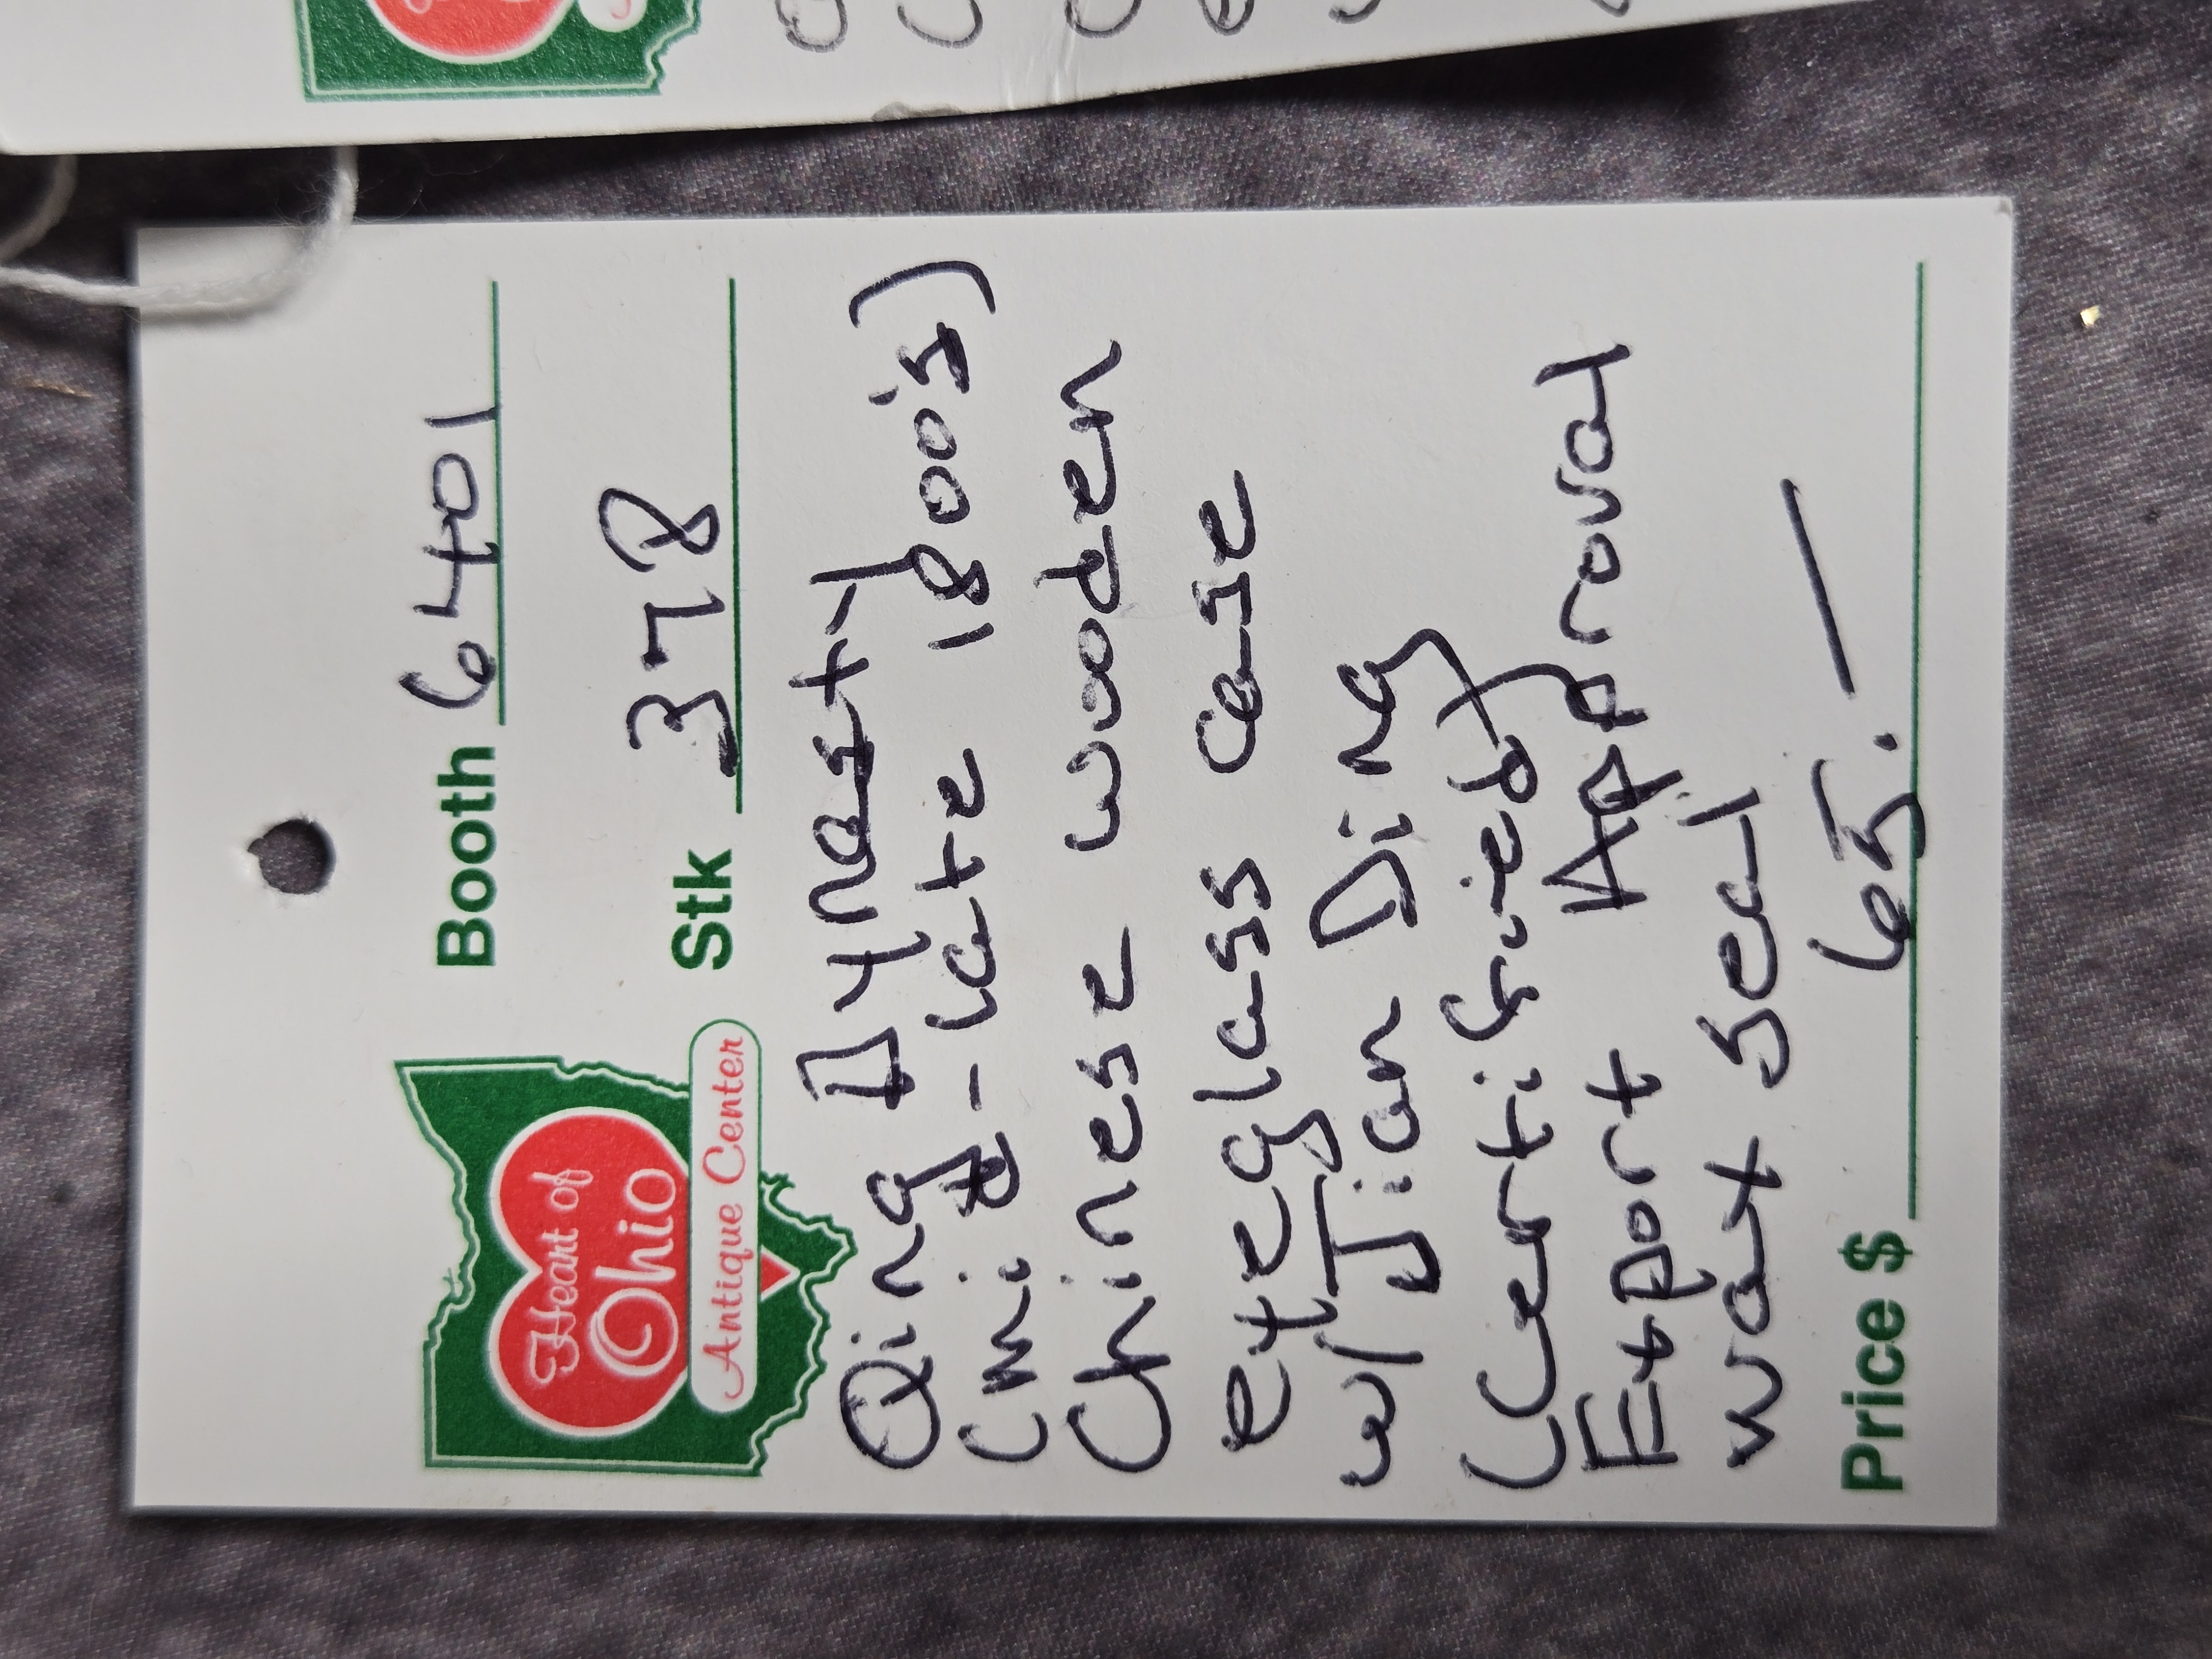 Heart of
Ohio
Antique Center
Booth 6401
Stk 378
Qing Dynasty
(mid-late 1800's)
Chinese wooden
eyeglass case
w/ Jian Ding
(Certified)
Export Approval
wax seal
Price $ 65.—